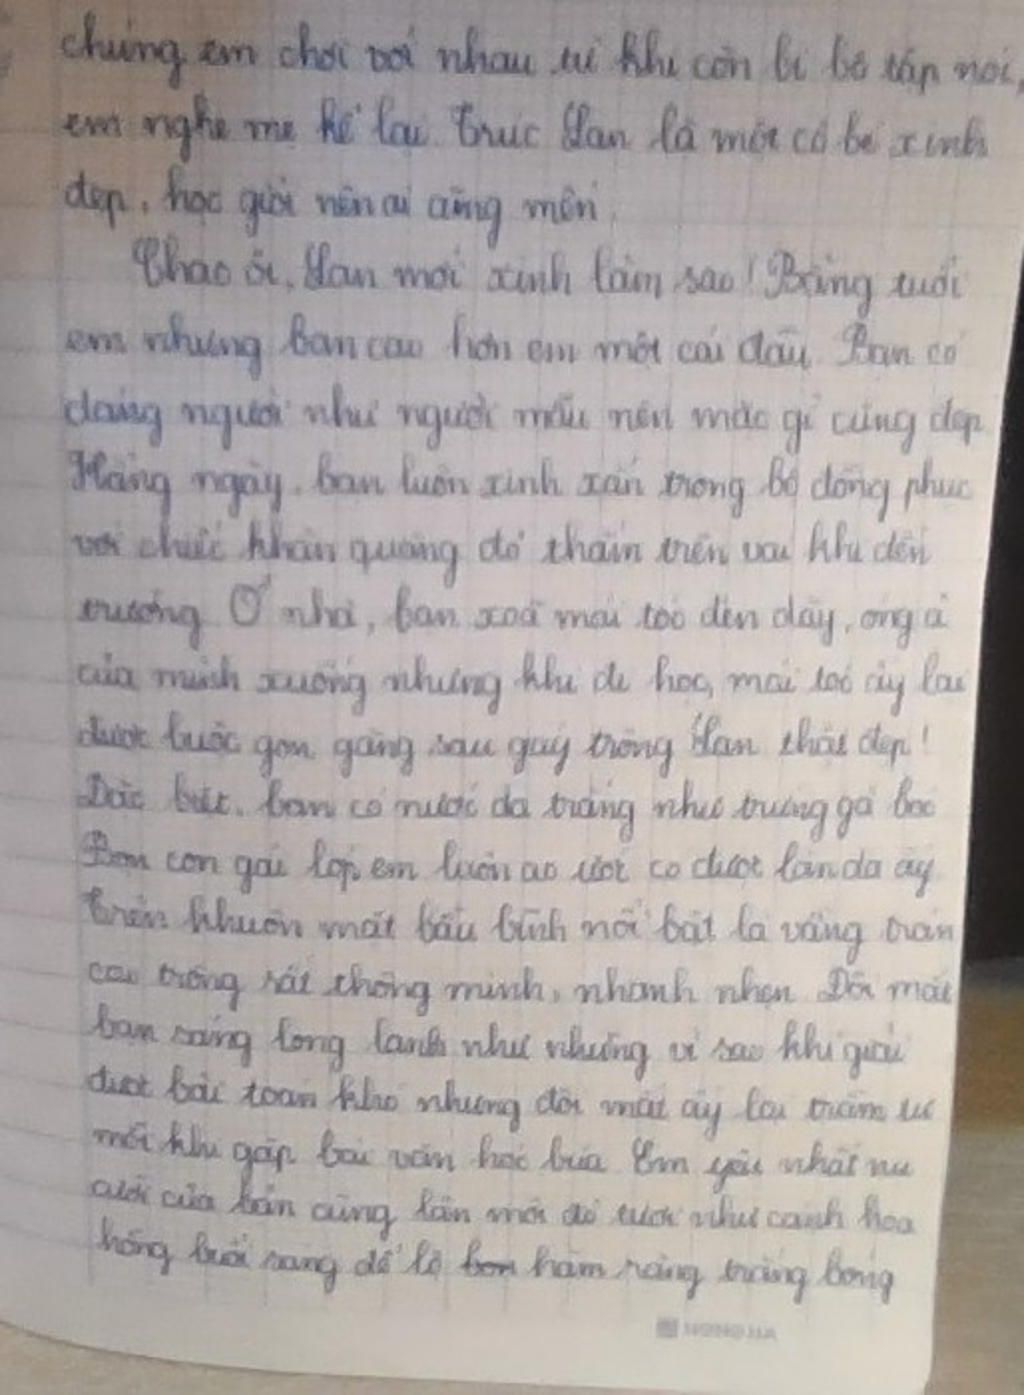 chúng em chơi với nhau từ khi còn bi bô tập nói,
em nghe mẹ kể lại. Trúc Lan là một cô bé xinh
đẹp, học giỏi nên ai cũng mến.
Chao ôi, Lan mới xinh làm sao! Bằng tuổi
em nhưng bạn cao hơn em một cái đầu. Bạn có
dáng người như người mẫu nên mặc gì cũng đẹp
Hàng ngày, bạn luôn xinh xắn trong bộ đồng phục
với chiếc khăn quàng đỏ thắm trên vai khi đến
trường. Ở nhà, bạn xoã mái tóc đen dày, óng ả
của mình xuống nhưng khi đi học, mái tóc ấy lại
được buộc gọn gàng sau gáy trông Lan thật đẹp!
Đặc biệt, bạn có nước da trắng như trứng gà bóc
Bọn con gái lớp em luôn ao ước có được làn da ấy.
Trên khuôn mặt bầu bĩnh nổi bật là vầng trán
cao trông rất thông minh, nhanh nhẹn. Đôi mắt
bạn sáng long lanh như những vì sao khi giải
được bài toán khó nhưng đôi mắt ấy lại trầm tư
mỗi khi gặp bài văn hóc búa. Em yêu nhất nụ
cười của bạn cùng làn môi đỏ tươi như cánh hoa
hồng buổi sáng để lộ hàm răng trắng bóng
HONG HA